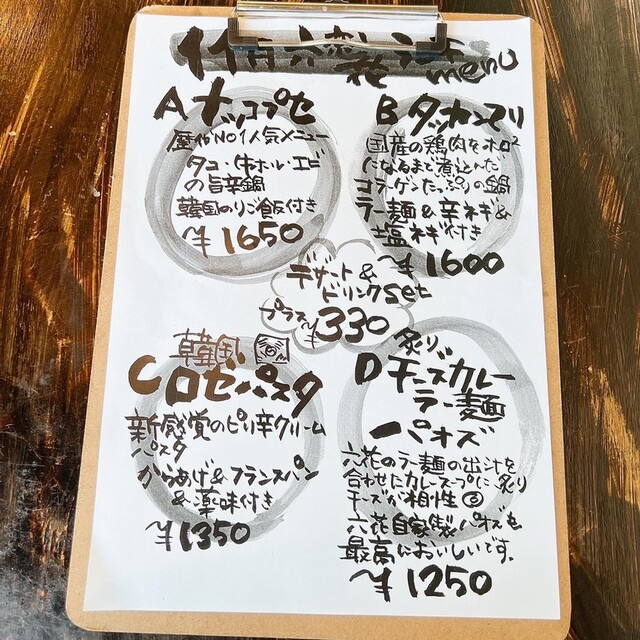 11月六花ランチ
menu
A ナッコプセ
歴代No1人気メニュー
タコ・牛ホル・エビ
の旨辛鍋
韓国のりご飯付き
¥1650
B タッカンマリ
国産の鶏肉をホロ²
になるまで煮込んだ
コラーゲンたっぷりの鍋
ラー麺&辛ネギ&
塩ネギ付き
¥1600
デザート&
ドリンクset
プラス¥330
韓国
C ロゼパスタ
新感覚のピリ辛クリーム
パスタ
からあげ&フランスパン
&薬味付き
¥1350
炙り
D チーズカレー
ラー麺
パオズ
六花のラー麺の出汁を
合わせたカレースープに炙り
チーズが相性◎
六花自家製パオズも
最高においしいです。
¥1250